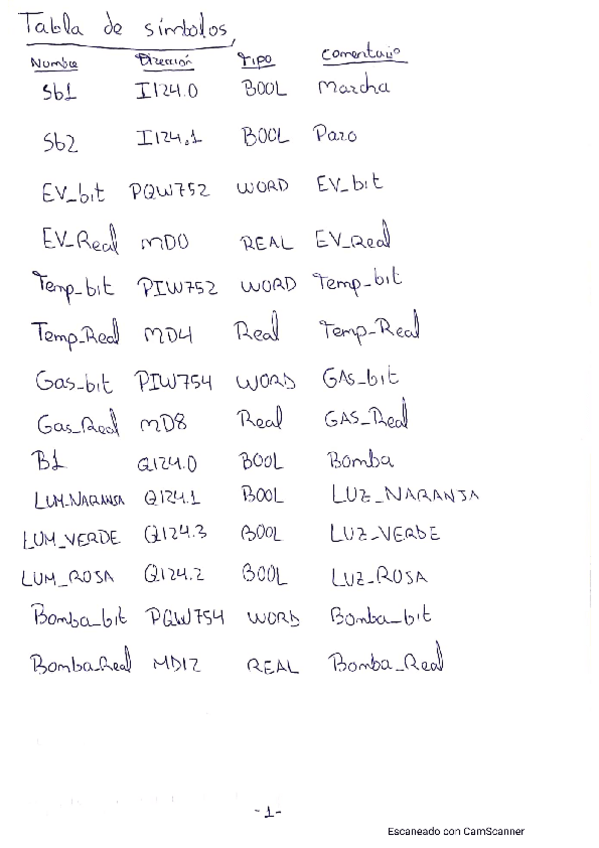 Tabla de símbolos
Nombre Dirección Tipo Comentario
Sb1 I124.0 BOOL Marcha
Sb2 I124.1 BOOL Paro
EV_bit PQW752 WORD EV_bit
EV_Real MD0 REAL EV_Real
Temp_bit PIW752 WORD Temp_bit
Temp_Real MD4 Real Temp_Real
Gas_bit PIW754 WORD GAs_bit
Gas_Real MD8 Real GAS_Real
B1 Q124.0 BOOL Bomba
LUM_NARANJA Q124.1 BOOL LUZ_NARANJA
LUM_VERDE Q124.3 BOOL LUZ_VERDE
LUM_ROSA Q124.2 BOOL LUZ_ROSA
Bomba_bit PQW754 WORD Bomba_bit
Bomba_Real MD12 REAL Bomba_Real
-1-
Escaneado con CamScanner